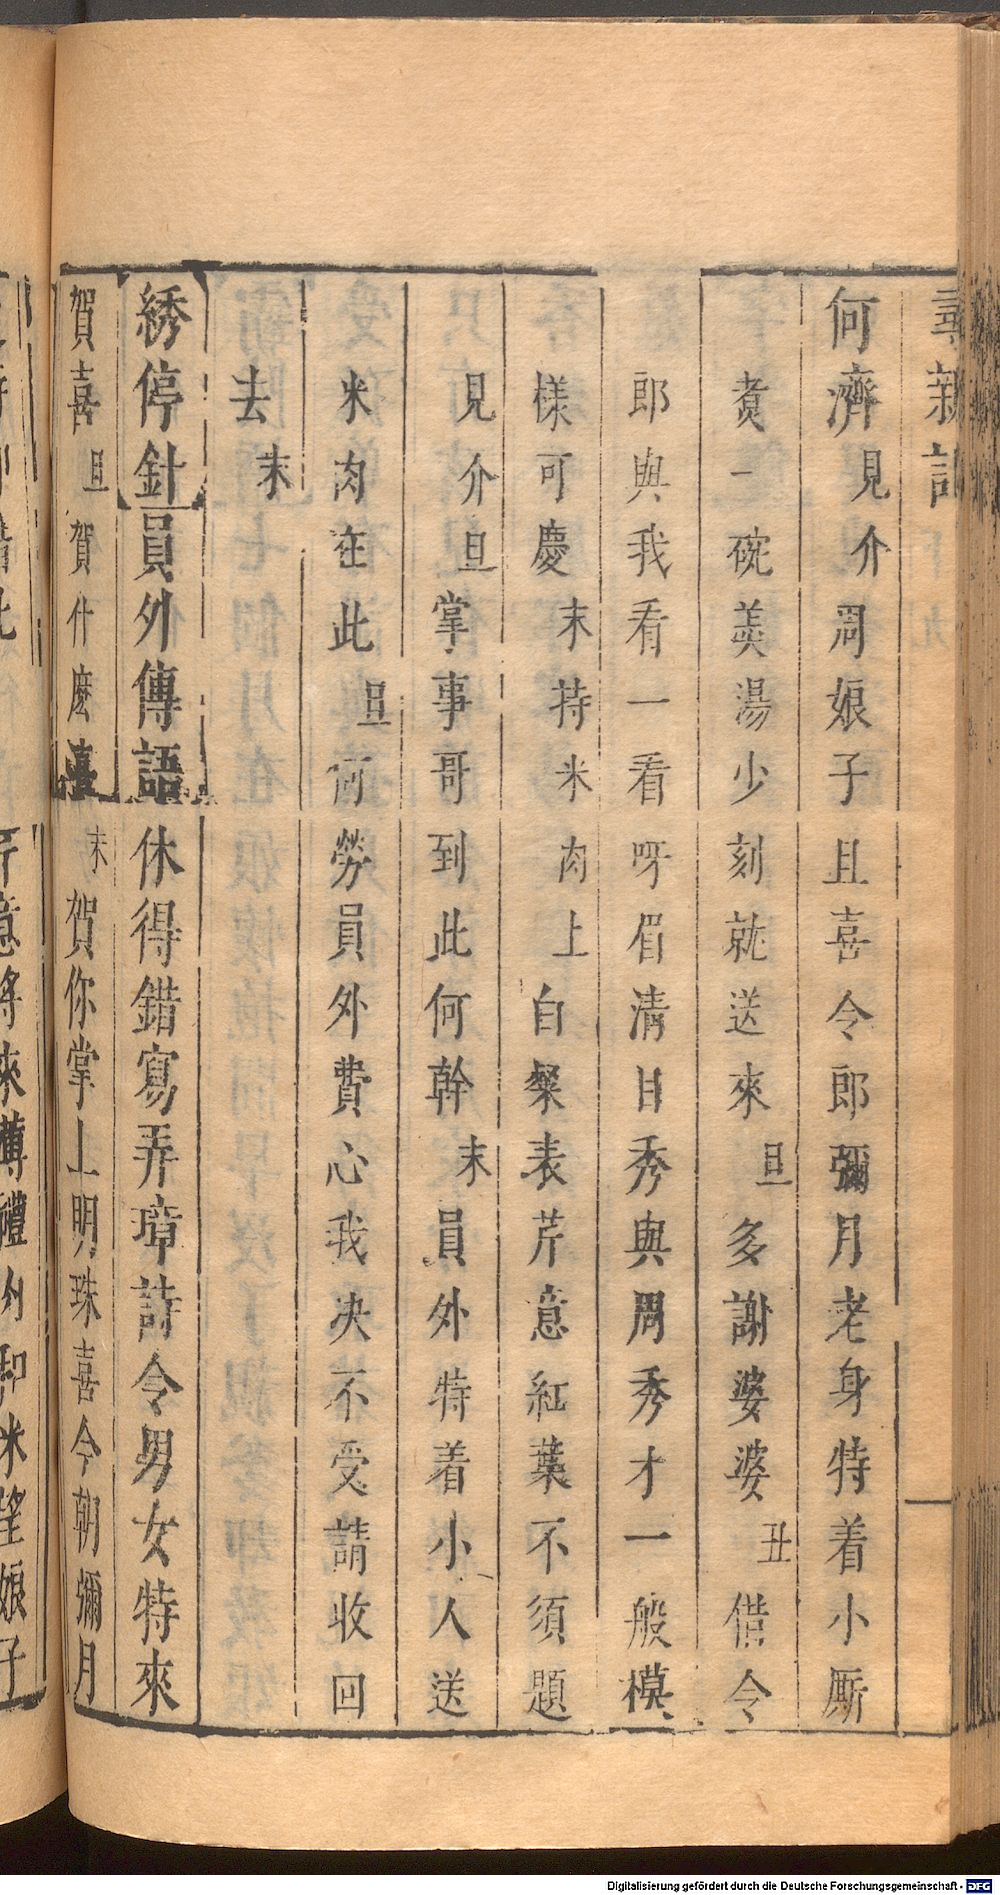 尋親記
何濟見介周娘子且喜令郎彌月老身特着小厮
煑一碗羙湯少刻就送來旦多謝婆婆丑借令
郎與我看一看呀眉清目秀與周秀才一般模
樣可慶末持米肉上白粲表芹意紅葉不須題
見介旦掌事哥到此何幹末員外特着小人送
米肉在此旦何勞員外費心我决不受請收回
去末
綉停針員外傳語休得錯寫弄璋詩令男女特來
賀喜旦賀什麽喜末賀你掌上明珠喜今朝彌月
Digitalisierung gefördert durch die Deutsche Forschungsgemeinschaft - DFG